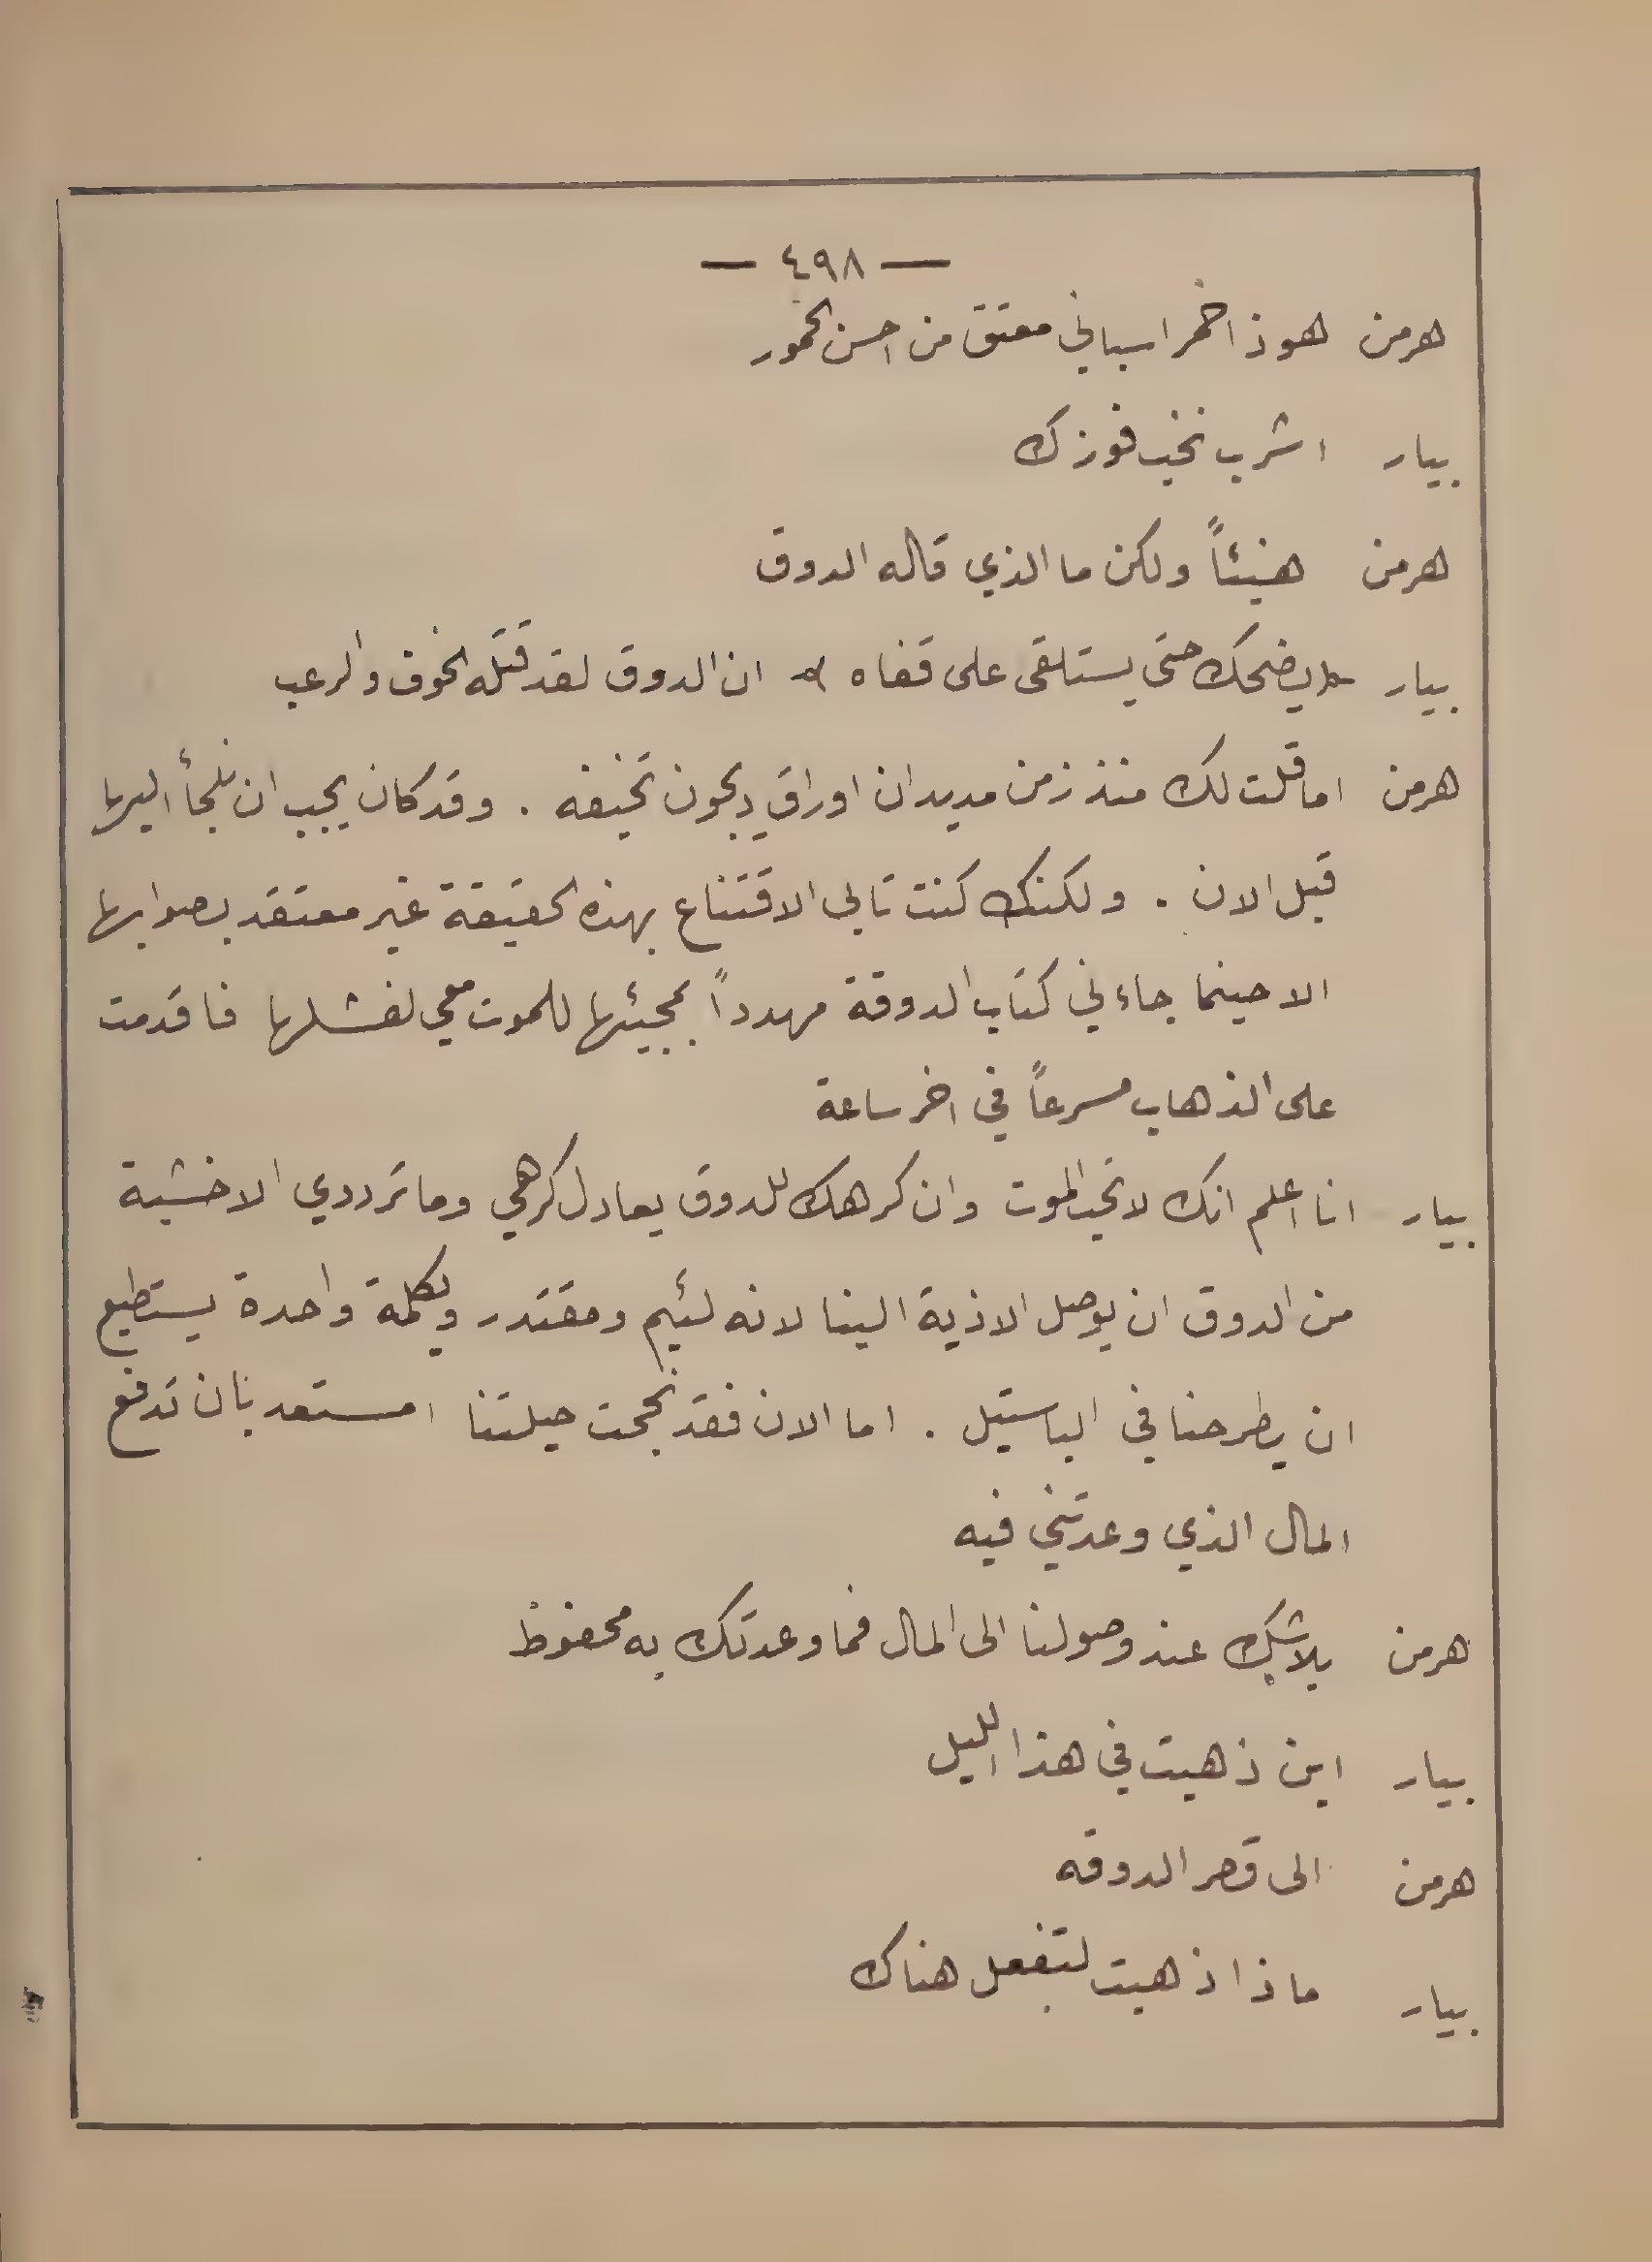 — ٤٩٨ —
هرمن هوذا خمر اسباني معتق من احسن الخمور
بيار اشرب نخب فوزك
هرمن هنيئاً ولكن ما الذي قاله الدوق
بيار يضحك حتى يستلقي على قفاه ان الدوق لقد قتله الخوف والرعب
هرمن اما قلت لك منذ زمن مديد ان اوراق ديجون تخيفه . وقد كان يجب ان نلجأ اليها
قبل الان . ولكنك كنت تابى الاقتناع بهذه الحقيقة غير معتقد بصوابها
الا حينما جاءني كتاب الدوقة مهدداً بمجيئها للموت معي لفشلها فاقدمت
على الذهاب مسرعاً في اخر ساعة
بيار انا اعلم انك لا تحب الموت وان كرهك للدوق يعادل كرهي وما ترددي الا خشية
من الدوق ان يوصل الاذية الينا لانه لئيم ومقتدر وبكلمة واحدة يستطيع
ان يطرحنا في الباستيل . اما الان فقد نجحت حيلتنا امستعد بان تدفع
المال الذي وعدتني فيه
هرمن بلا شك عند وصولنا الى المال فما وعدتك به محفوظ
بيار اين ذهبت في هذا الليل
هرمن الى قصر الدوقه
بيار ماذا ذهبت لتفعل هناك